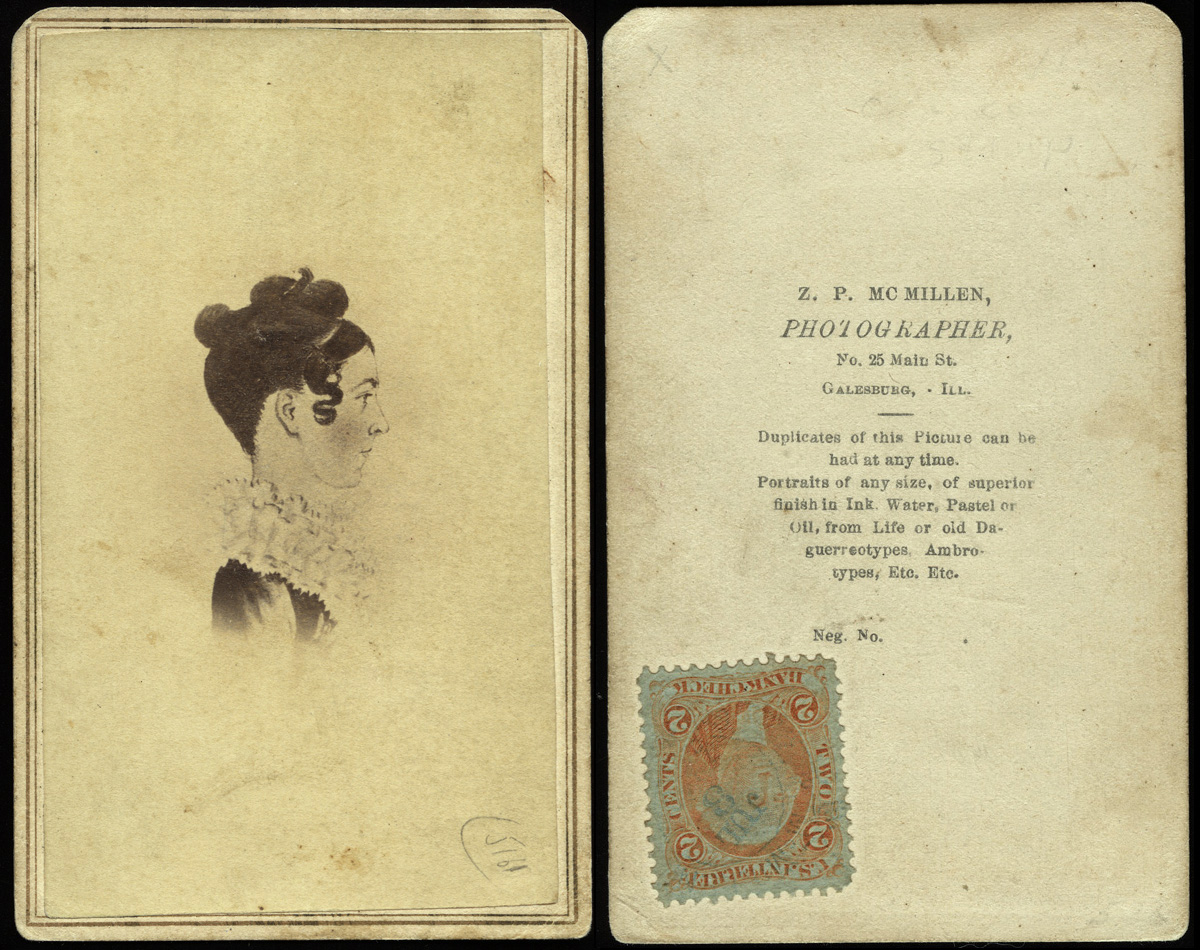 Z. P. MC MILLEN,
PHOTOGRAPHER,
No. 25 Main St.
GALESBURG, - ILL.
Duplicates of this Picture can be
had at any time.
Portraits of any size, of superior
finish in Ink. Water, Pastel or
Oil, from Life or old Da-
guerreotypes, Ambro-
types, Etc. Etc.
Neg. No.
BANK CHECK
2 2
CENTS TWO
2 2
U.S. INTER. REV.